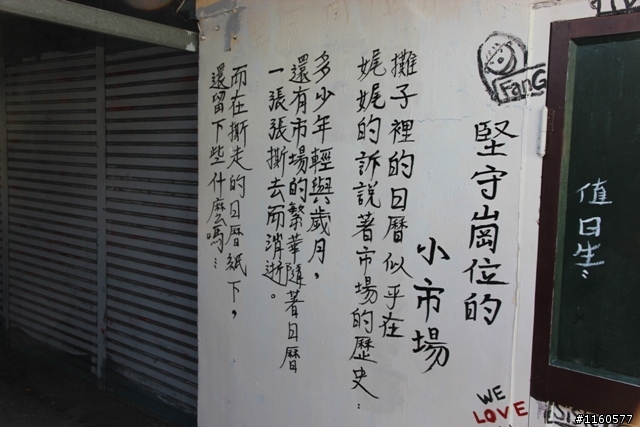 堅守崗位的
小市場
攤子裡的日曆似乎在
娓娓的訴說著市場的歷史：
多少年輕與歲月，
還有市場的繁華隨著日曆
一張張撕去而消逝。
而在撕走的日曆紙下，
還留下些什麼嗎…
FanG
值日生：
WE
LOVE
#1160577